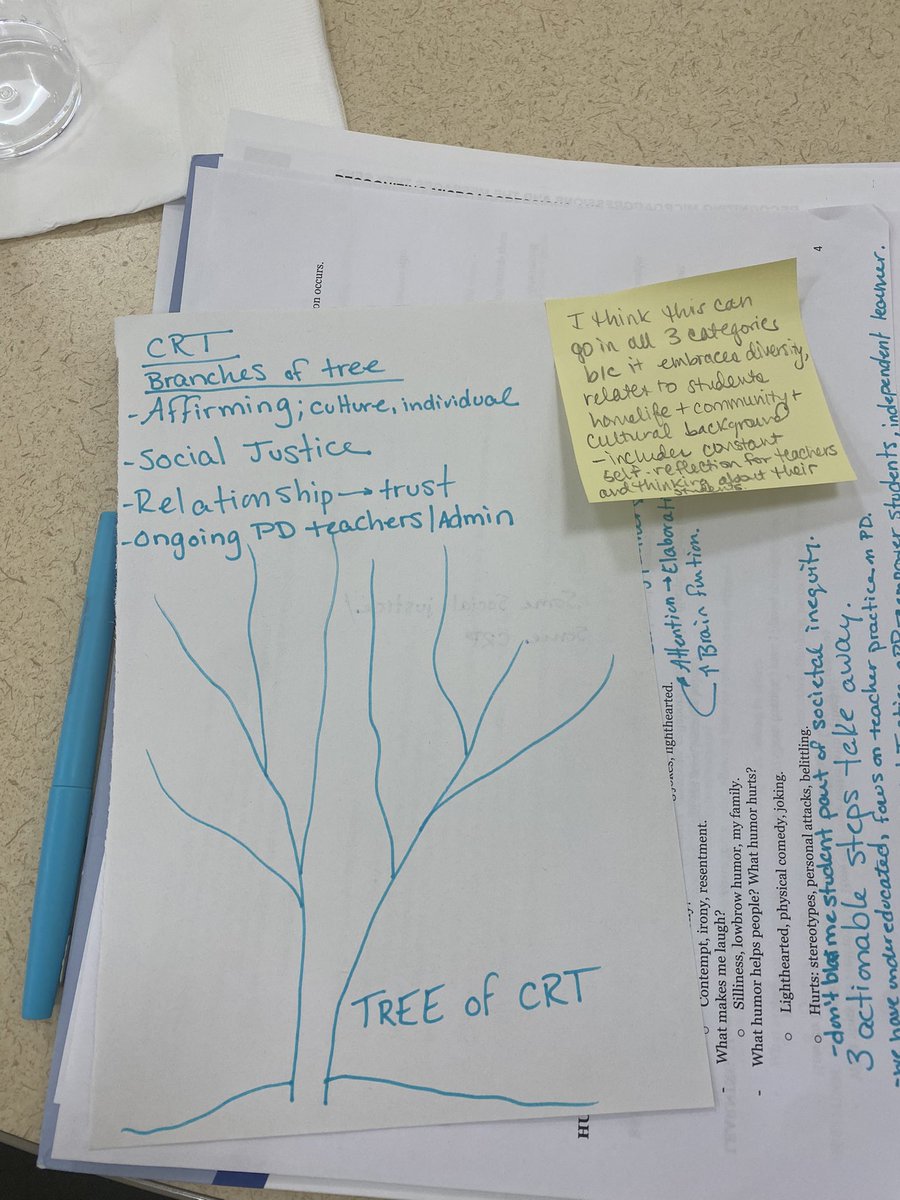 CRT
Branches of tree
-Affirming; culture, individual
-Social Justice
-Relationship→trust
-Ongoing PD teachers/Admin
TREE of CRT
I think this can
go in all 3 categories
b/c it embraces diversity,
relates to students
homelife + community +
cultural background
-includes constant
self-reflection for teachers
and thinking about their
students.
on occurs.
4
Attention→Elaborat
↑ Brain funtion.
lighthearted.
Contempt, irony, resentment.
- What makes me laugh?
○ Silliness, lowbrow humor, my family.
- What humor helps people? What humor hurts?
○ Lighthearted, physical comedy, joking.
○ Hurts: stereotypes, personal attacks, belittling.
-don't blame student part of societal inequity.
3 actionable steps take away.
-we have undereducated, focus on teacher practice in PD.
empower students, independent learner.
HU